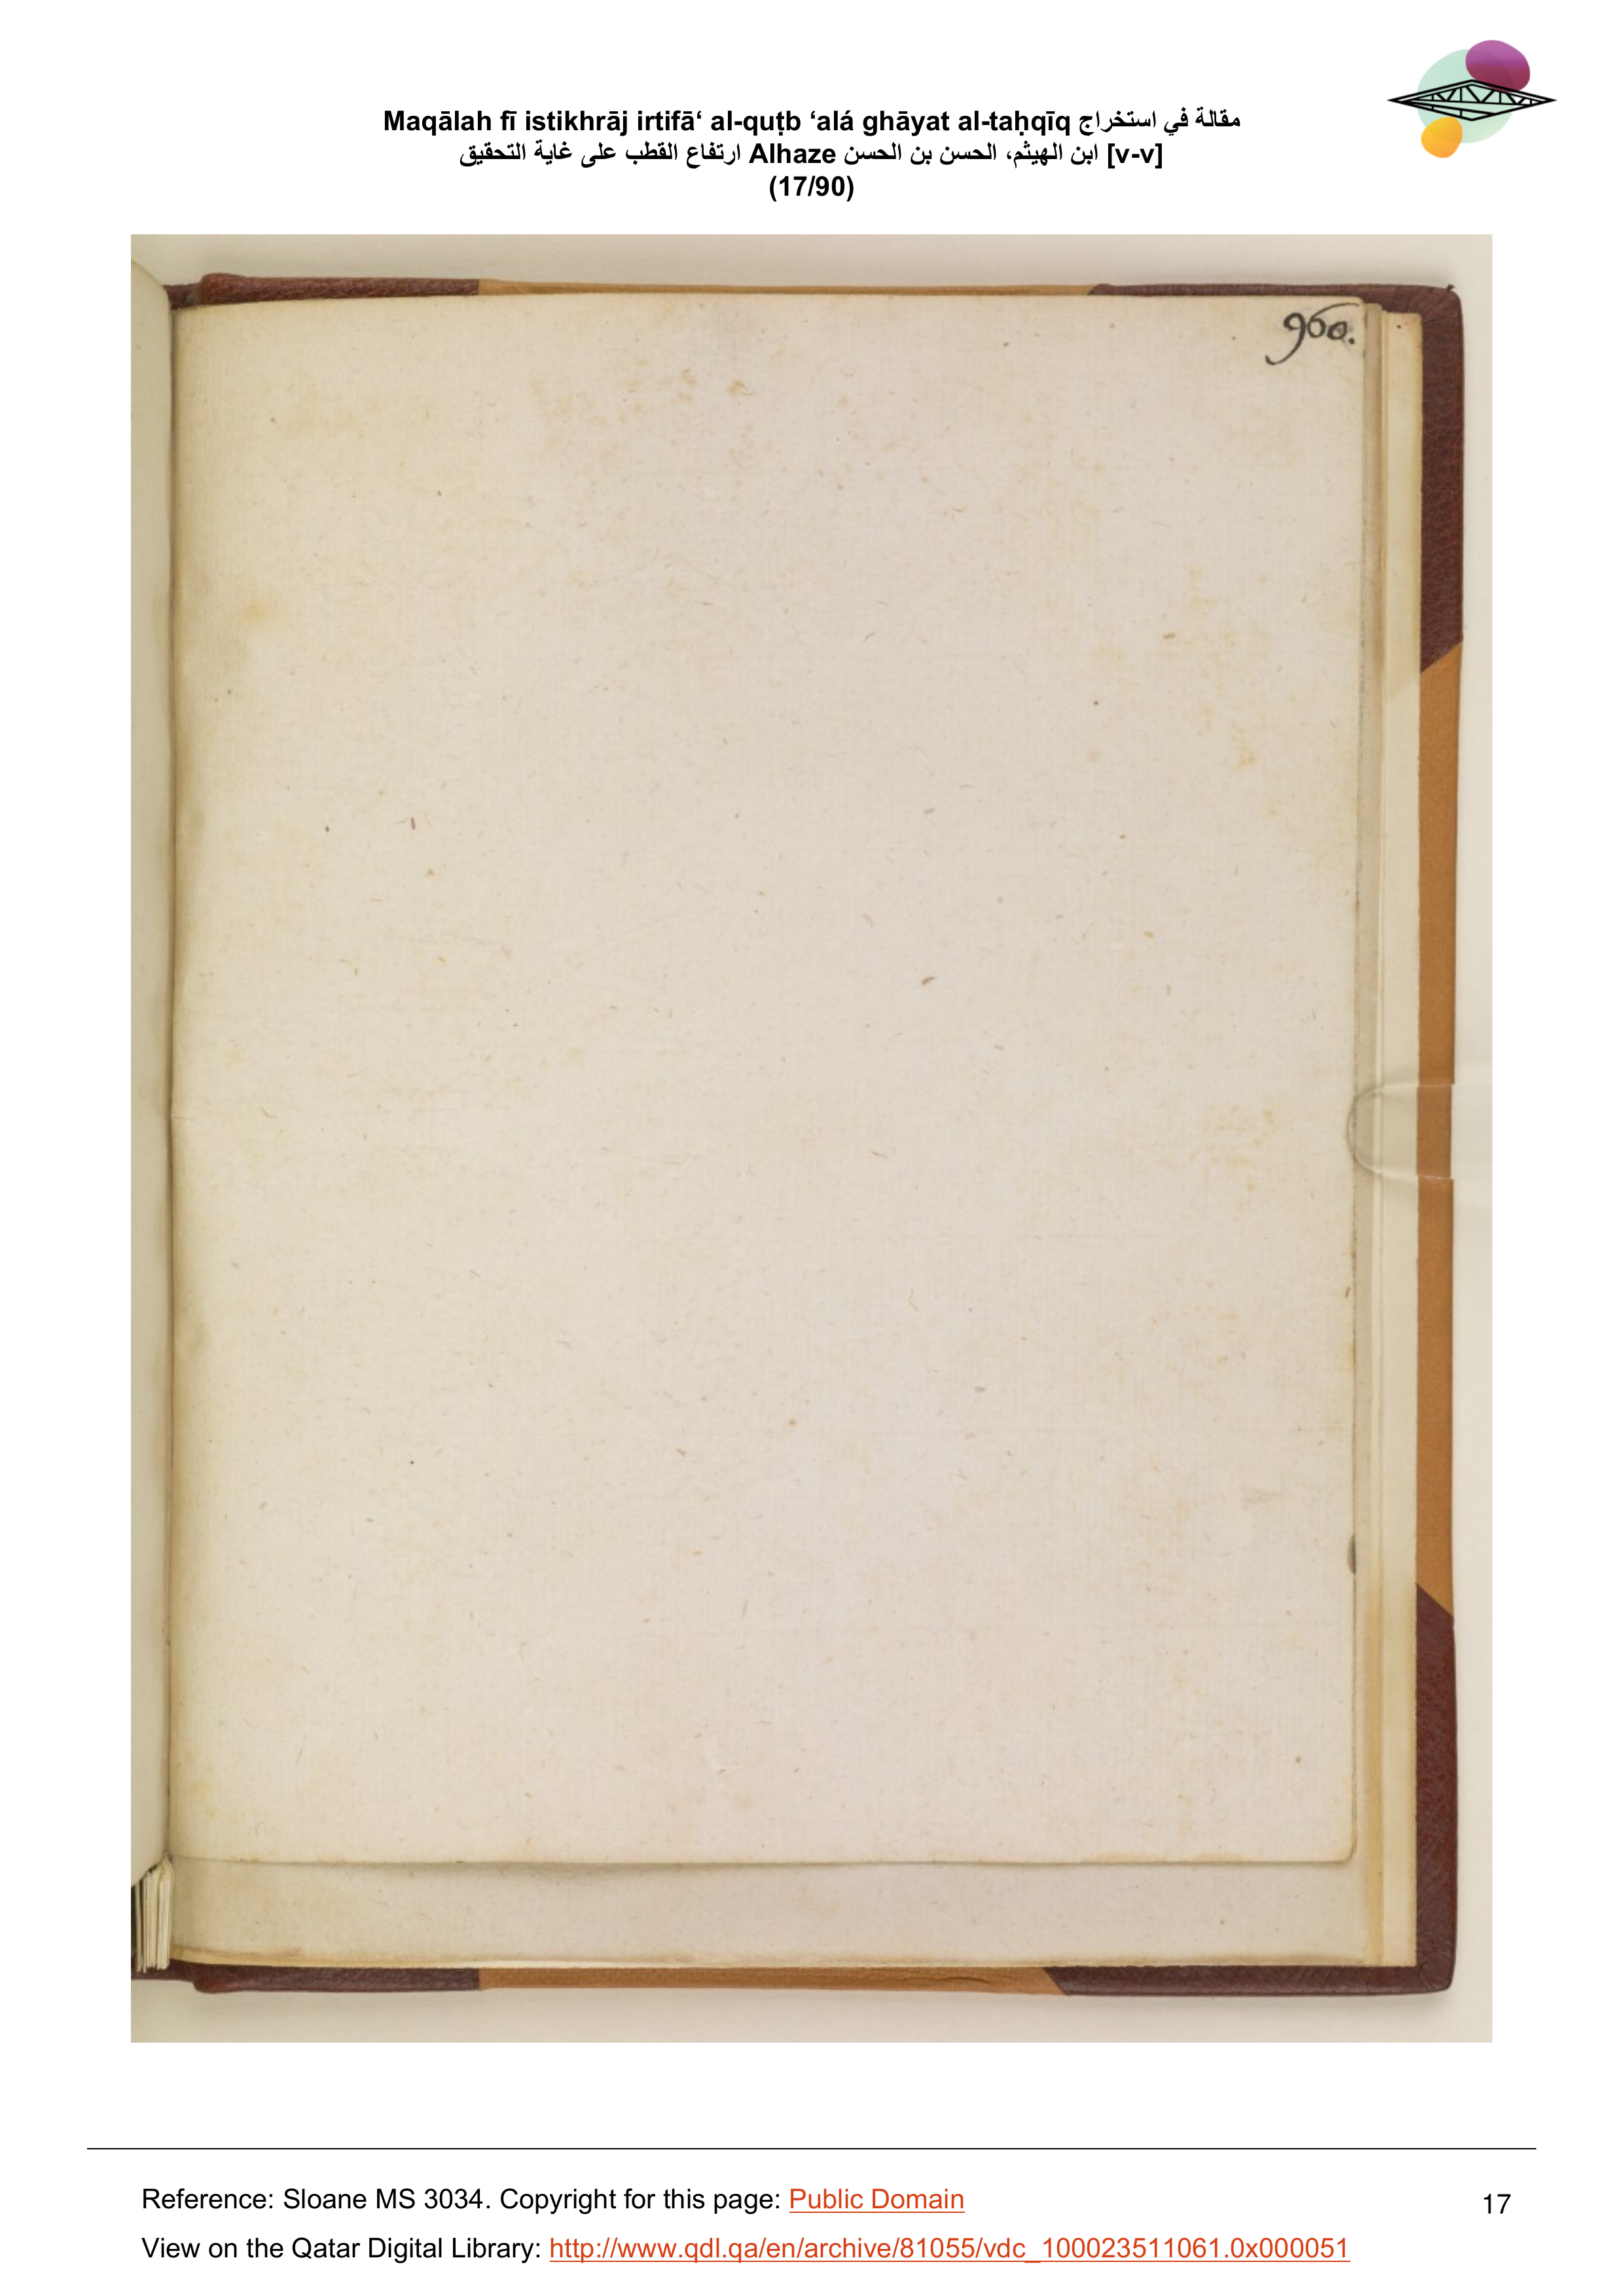 Maqālah fī istikhrāj irtifā‘ al-quṭb ‘alá ghāyat al-taḥqīq مقالة في استخراج
ارتفاع القطب على غاية التحقيق Alhaze ابن الهيثم، الحسن بن الحسن [v-v]
(17/90)
960.
Reference: Sloane MS 3034. Copyright for this page: Public Domain
17
View on the Qatar Digital Library: http://www.qdl.qa/en/archive/81055/vdc_100023511061.0x000051